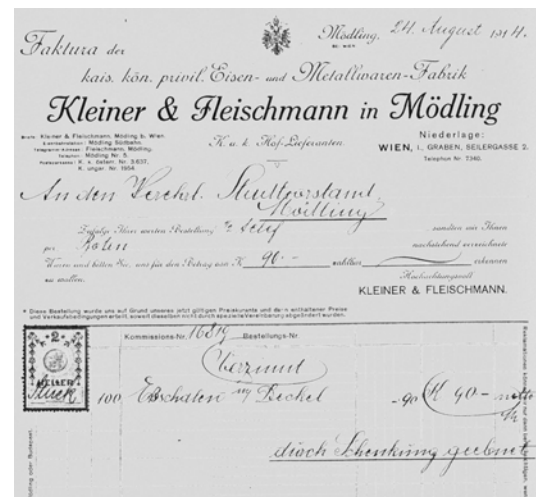 Faktura der
Mödling, 24. August 1914.
BEI WIEN
kais. kön. privil. Eisen- und Metallwaren-Fabrik
Kleiner & Fleischmann in Mödling
Briefe: Kleiner & Fleischmann, Mödling b. Wien.
Mödling Südbahn.
Telegramm-Adresse: Fleischmann, Mödling.
Telephon: Mödling Nr. 5.
Postsparkassa: K. k. österr. Nr. 3.637.
K. ungar. Nr. 1954.
K. u. k. Hof-Lieferanten.
Niederlage:
WIEN, I., GRABEN, SEILERGASSE 2.
Telephon Nr. 7340.
An den Verehrl. Stadtvorstand
Mödling
Zufolge Ihrer werten Bestellung sandten wir Ihnen
per Boten nachstehend verzeichnete
Waren und bitten Sie, uns für den Betrag von K 90.- erkennen
zu wollen.
Hochachtungsvoll
KLEINER & FLEISCHMANN.
* Diese Bestellung wurde uns auf Grund unseres jetzt gültigen Preiskurants und der in enthaltener Preise
und Verkaufsbedingungen erteilt, soweit dieselben nicht durch spezielle Vereinbarung abgeändert wurden.
Kommissions-Nr. 16819 Bestellungs-Nr.
2
HELLER
Stück
Verzinnt
100 Eßschalen m/ Deckel -.90 K 90- netto
durch Schenkung geebnet
Mödling oder Budapest.